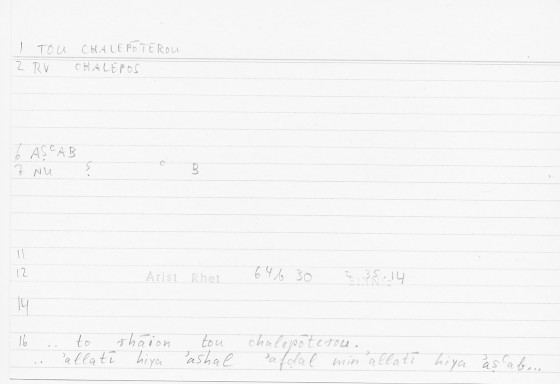 1 TOU CHALEPŌTEROU
2 RV CHALEPOS
6 AṢᶜAB
7 NU Ṣ ᶜ B
11
12 Arist Rhet 64b 30 = 35.14
14
16 .. to rhāion tou chalepōterou.
.. 'allatī hiya 'ashal 'afḍal min 'allatī hiya 'aṣᶜab...